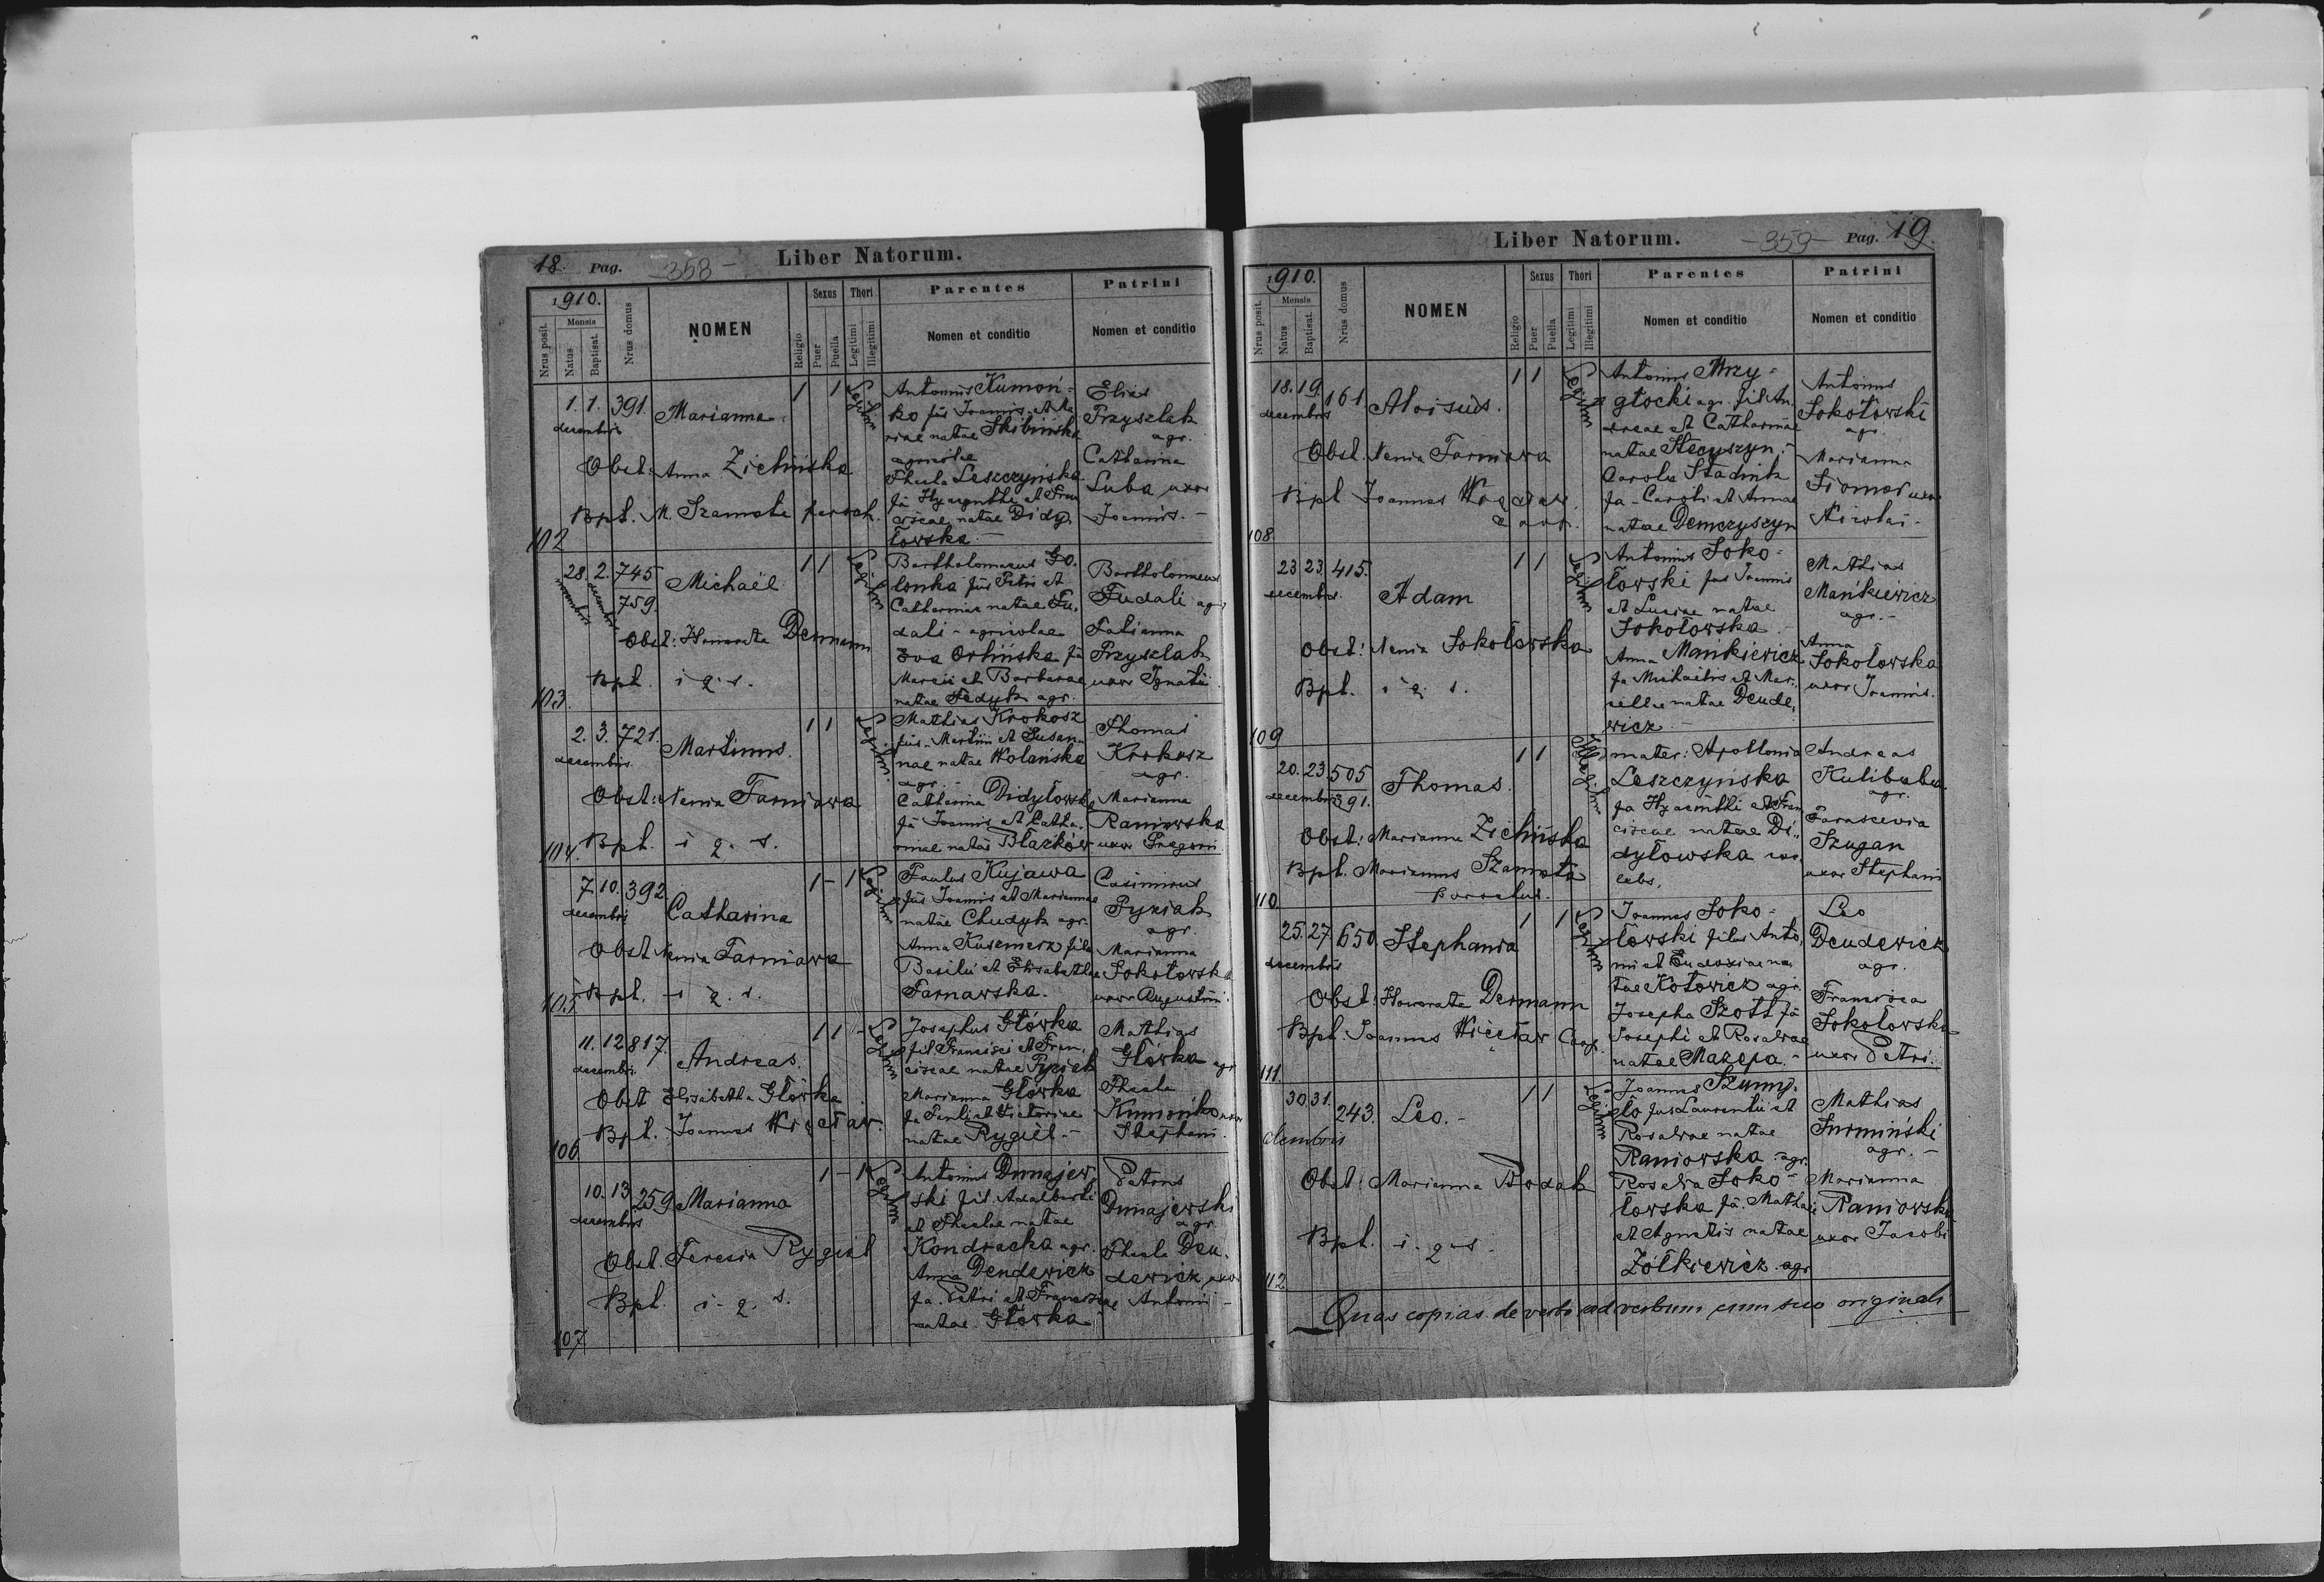 18. Pag. -358- Liber Natorum.
1910.
Nrus posit.
Mensis
Natus
Baptisat.
Nrus domus
NOMEN
Religio
Sexus
Puer
Puella
Thori
Legitimi
Illegitimi
Parentes
Nomen et conditio
Patrini
Nomen et conditio
102
1. 1. 391.
decembris
Marianna
1 1
Legitim
Obst: Anna Zichińska
Bpt. M. Szamota paroch.
Antonius Kumoń-
ko fus Joannis et Ma
riae natae Skibińska
agricolae
Thecla Leszczyńska
fa Hyacinthi et Fran
ciscae natae Didy-
łowska.-
Elias
Przyszlak
agr.
Catharina
Luba uxor
Joannis.-
103.
28. 2. 745
759.
novembris decembris
Michaël
1 1
Legitim
Obst: Honorata Dermann
Bpt. i. q. s.
Bartholomaeus Go-
lonka fus Petri et
Catharinae natae Fu-
dali - agricolae
Eva Orlińska fa
Marci et Barbarae
natae Fedyk agr.
Bartholomaeus
Fudali agr
Julianna
Przyszlak
uxor Ignatii.
104.
2. 3. 721.
decembris
Martinus.
1 1
Legitim.
Obst: Nenia Tarniawa
Bpt. i. q. s.
Mathias Krokosz
fus Martini et Susan-
nae natae Wolańska
agr.-
Catharina Didyłowska
fa Joannis et Catha-
rinae natae Błażków
Thomas
Krokosz
agr.
Marianna
Raniowska
uxor Gregorii
105
7. 10. 392
decembris
Catharina
1 - 1
Legitim
Obst Nenia Tarniawa
Bpt. i. q. s.
Paulus Kujawa
fus Joannis et Mariannae
natae Chudyk agr.
Anna Kusemerz fila
Basilii et Elisabethae
Tarnawska.
Casimirus
Pyziak
agr.
Marianna
Sokołowska
uxor Augustini.
106
11. 12 817.
decembri
Andreas.
1 1
Legitim
Obst Elisabetha Głowka
Bpt. Joannes Więcław.
Josephus Głowka
fil Francisci et Fran-
ciscae natae Pyziak
Marianna Głowka
fa Pauli et Victoriae
natae Rygiel.-
Mathias
Głowka agr
Thecla
Kumońko uxor
Stephani.
107
10. 13 259
decembris
Marianna
1 - 1
Legitim
Obst. Teresia Rygiel
Bpt. i. q. s.
Antonius Dunajew-
ski fil. Adalberti
et Theclae natae
Kondracka agr.
Anna Deudewicz
fa. Petri et Franciscae
natae Głowka
Petrus
Dunajewski
agr.
Thecla Deu-
dewicz uxor
Antonii -
Liber Natorum. -359- Pag. 19.
1910.
Nrus posit.
Mensis
Natus
Baptisat.
Nrus domus
NOMEN
Religio
Sexus
Puer
Puella
Thori
Legitimi
Illegitimi
Parentes
Nomen et conditio
Patrini
Nomen et conditio
108
18. 19. 161
decembris
Aloisius.
1 1
Legitim
Obst. Nenia Tarniawa
Bpt Joannes
Antonius Mrzy-
głocki agr. fil. An-
dreae et Catharinae
natae Stecyszyn.-
Carola Stadnik
fa - Caroli et Annae
natae Demczyszyn
Antonius
Sokołowski
agr.
Marianna
uxor
Nicolai -
109
23 23. 415.
decembris.
Adam
1 1
Legitim
Obst: Nenia Sokołowska
Bpt. i. q. s.
Antonius Soko-
łowski fus Joannis
et Luciae natae
Sokołowska.-
Anna Mańkiewicz
fa Michaelis et Mar-
cellae natae Deude-
wicz.-
Mathias
Mańkiewicz
agr.-
Anna
Sokołowska
uxor Joannis.
110
20. 23. 505
391.
decembris
Thomas.
1 1
Illegitim
Obst: Marianna Zichińska
Bpt. Marianus Szamota
parochus.
mater: Apollonia
Leszczyńska
fa Hyacinthi et Fran
ciscae natae Di-
dyłowska cae-
lebs.
Andreas
Kulibaba
agr.
Parascevia
Szugan
uxor Stephani
111
25. 27 650
decembris
Stephania
1 1
Legitim
Obst: Honorata Dermann
Bpt. Joannes Więcław Coop.
Joannes Soko-
łowski filus Anto-
ni et Eudoxiae na-
tae Kotowicz agr.
Josepha Szott fa
Josephi et Rosaliae
natae Mazepa.-
Leo
Deudewicz
agr.
Francisca
Sokołowska
uxor Petri.
112
30 31. 243.
decembris
Leo.-
1 1
Legitim
Obst: Marianna Bodak
Bpt. i. q. s.
Joannes Szumy-
ło fus Laurentii et
Rosaliae natae
Raniowska agr.
Rosalia Soko-
łowska fa. Mathaei
et Agnetis natae
Żółkiewicz agr
Mathias
Surmiński
agr.-
Marianna
Raniowska
uxor Jacobi
Quas copias de verbo ad verbum cum suo originali